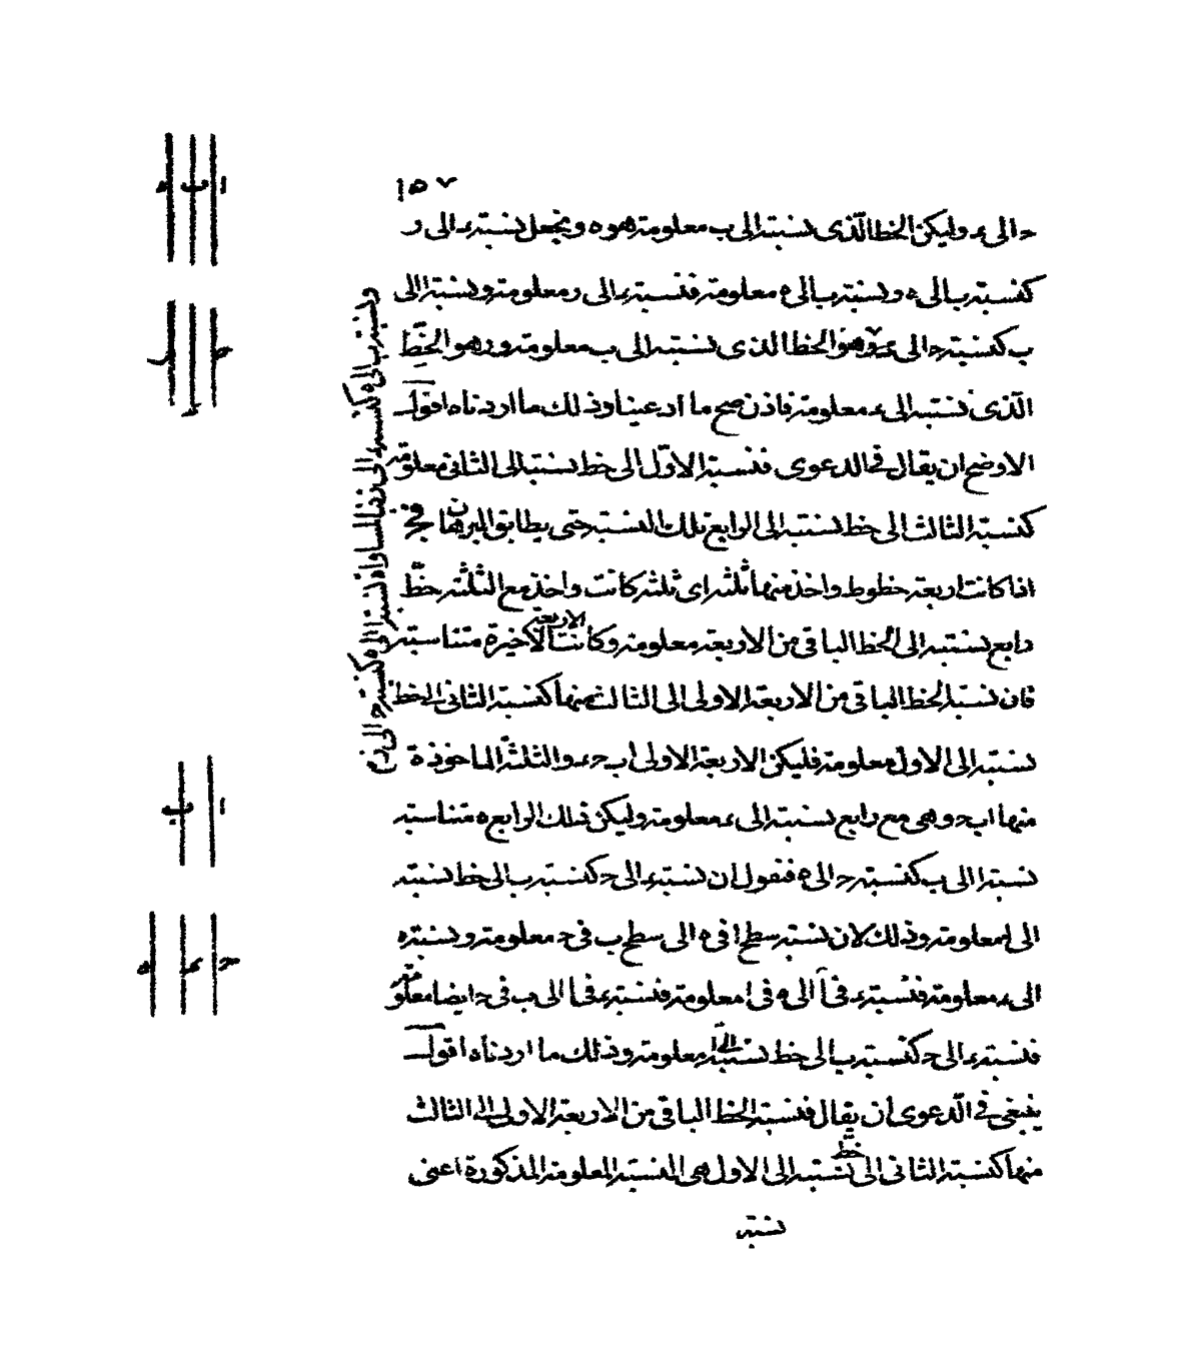 ١٥٧
حـ الى ء وليكن الخط الّذى نسبته الى ب معلومة هو ه ونجعل نسبة ء الى ر
كنسبة ب الى ه ونسبة ب الى ه معلومة فنسبة ء الى ر معلومة ونسبة ا الى
ب كنسبة حـ الى ء وهو الخط الذى نسبته الى ب معلومة ور هو الخطّ
الّذى نسبته الى ء معلومة فاذن صح ما ادعينا وذلك ما اردناه اقول
الاوضح ان يقال فى الدعوى فنسبة الاوّل الى خط نسبته الى الثانى معلومة
كنسبة الثالث الى خط نسبته الى الرابع تلك النسبة حتى يطابق البرهان
اذا كانت اربعة خطوط واخذ منها ثلثة اى ثلثة كانت واخذ مع الثلثة خطّ
رابع نسبته الى الخط الباقى من الاربعة معلومة وكانت الاربعة الاخيرة متناسبة
فان نسبة الخط الباقى من الاربعة الاولى الى الثالث منها كنسبة الثانى الى خط
نسبته الى الاول معلومة فليكن الاربعة الاولى ا ب حـ ء والثلثة الماخوذة
منها ا ب حـ وهى مع رابع نسبته الى ء معلومة وليكن ذلك الرابع ه متناسبة
نسبة ا الى ب كنسبة حـ الى ه فنقول ان نسبة ء الى حـ كنسبة ب الى خط نسبته
الى ا معلومة وذلك لان نسبة سطح ا فى ه الى سطح ب فى حـ معلومة ونسبة ه
الى ء معلومة فنسبة ء فى ا الى ه فى ا معلومة فنسبة ء فى ا الى ب فى حـ ايضا معلومة
فنسبة ء الى حـ كنسبة ب الى خط نسبته الى ا معلومة وذلك ما اردناه اقول
ينبغى فى الّدعوى ان يقال فنسبة الخط الباقى من الاربعة الاولى الى الثالث
منها كنسبة الثانى الى خط نسبته الى الاول هى النسبة المعلومة المذكورة اعنى
نسبة
ونسبة ب الى ه كنسبة ء الى ر فبالمساواة نسبة ا الى ه كنسبة حـ الى ر
ا ب ه
حـ ء ر
ا ب
حـ ء ه